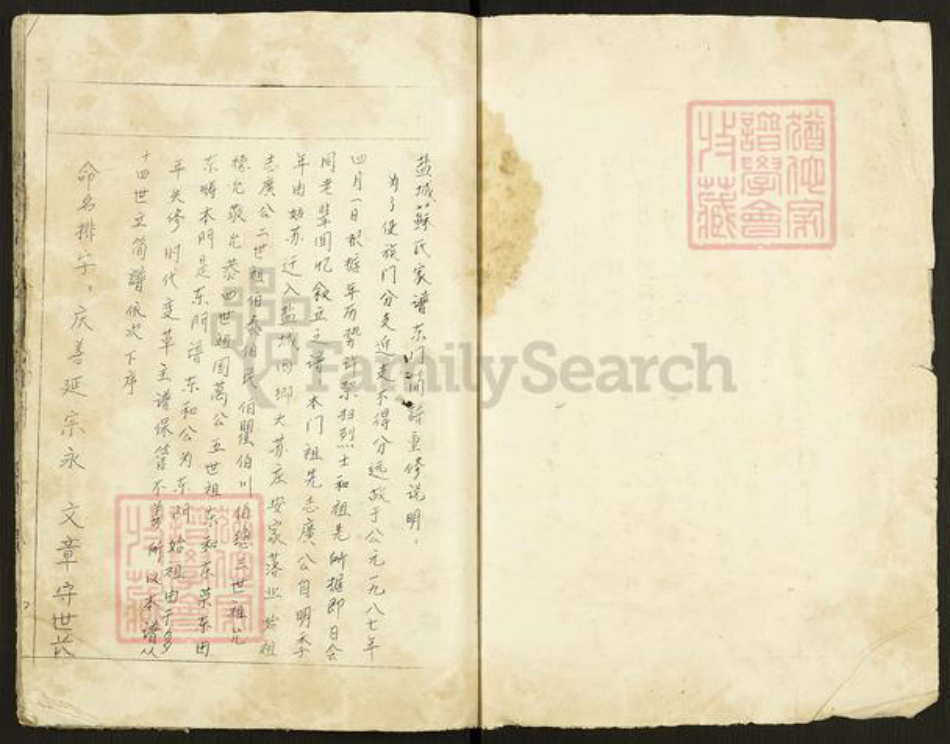 盐城蘇氏家谱东门简谱重修说明：
为了使族门分支近支不得分远故于公元一九八七年
四月一日根据年祭扫烈士和祖先所据即日会
同老辈回忆叙立之谱本门祖先志廣公自明季
年由姑苏迁入盐城西鄉大苏庄安家落业始祖
志廣公二世祖伯泰伯民伯盟伯川伯聰三世祖允
德允敬允恭四世祖国萬公五世祖东和东菜东田
东疇本門是东門谱东和公为东門始祖由于多
年失修时代变革主谱保管不善所以本谱从
十四世立简譜依次下序
命名排字：庆善延宗永 文章守世长
猶他家譜學會收藏
猶他家譜學會收藏
FamilySearch